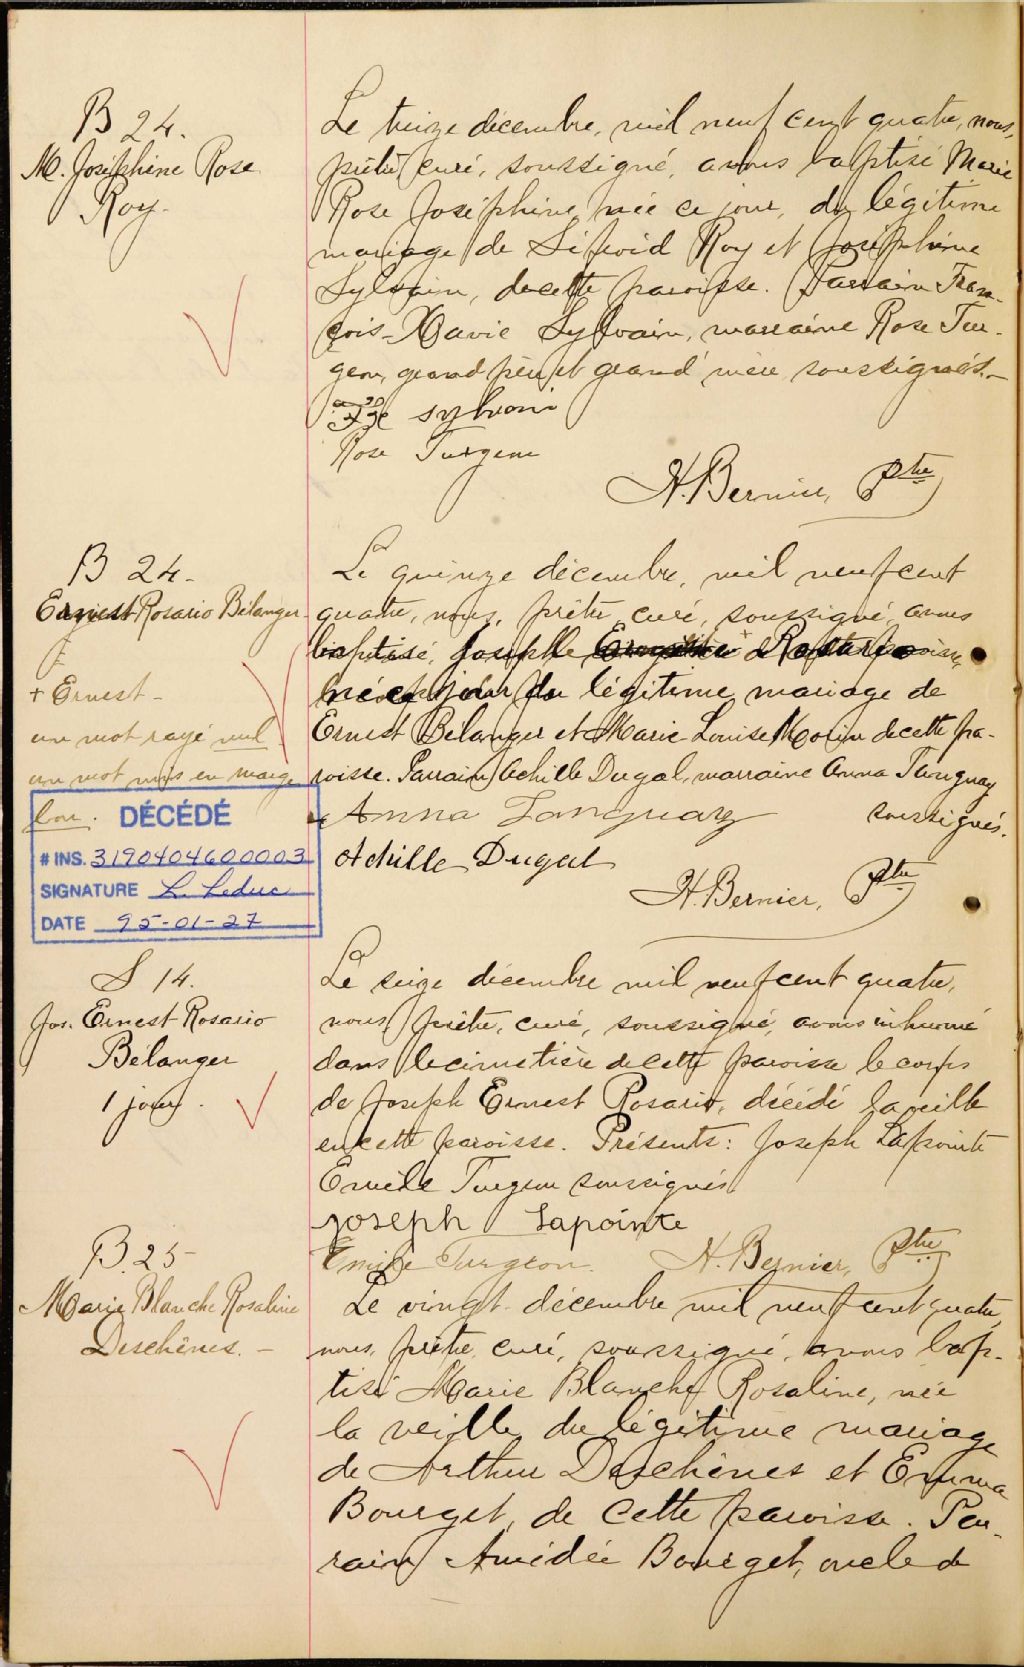 B 24.
M. Joséphine Rose
Roy.
Le treize décembre, mil neuf cent quatre, nous,
prêtre curé, soussigné, avons baptisé Marie
Rose Joséphine, née ce jour, du légitime
mariage de Sifroid Roy et Joséphine
Sylvain, de cette paroisse. Parrain Fran-
çois-Xavie Sylvain, marraine Rose Tur-
geon, grand père et grand'mère soussignés.-
sylvain
Rose Turgeon
H. Bernier, Ptre
B 24.
Ernest Rosario Bélanger
+ Ernest -
un mot rayé nul
un mot mis en marge
bon.
DÉCÉDÉ
# INS. 3190404600003
SIGNATURE L. Leduc
DATE 95-01-27
Le quinze décembre, mil neuf cent
quatre, nous, prêtre curé, soussigné, avons
baptisé, Joseph + Rosario
né ce jour du légitime mariage de
Ernest Bélanger et Marie-Louise Morin de cette pa-
roisse. Parrain Achille Dugal, marraine Anna Tanguay
soussignés.
Anna Tanguay
Achille Dugal
H. Bernier, Ptre
S 14.
Jos. Ernest Rosario
Bélanger
1 jour.
Le seize décembre mil neuf cent quatre,
nous, prêtre, curé, soussigné, avons inhumé
dans le cimetière de cette paroisse le corps
de Joseph Ernest Rosario, décédé la veille
en cette paroisse. Présents: Joseph Lapointe
Emile Turgeon soussignés
Joseph Lapointe
Emile Turgeon. H. Bernier, Ptre
B. 25
Marie Blanche Rosaline
Deschênes. -
Le vingt décembre mil neuf cent quatre,
nous, prêtre, curé, soussigné, avons bap-
tisé Marie Blanche Rosaline, née
la veille, du légitime mariage
de Arthur Deschênes et Emma
Bourget, de cette paroisse. Par-
rain Amédée Bourget, oncle d